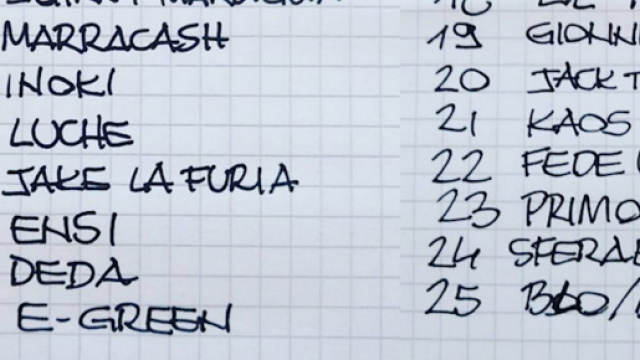 MARRACASH
INOKI
LUCHE
JAKE LA FURIA
ENSI
DEDA
E-GREEN
19 GIONN
20 JACK T
21 KAOS
22 FEDE
23 PRIMO
24 SFERAE
25